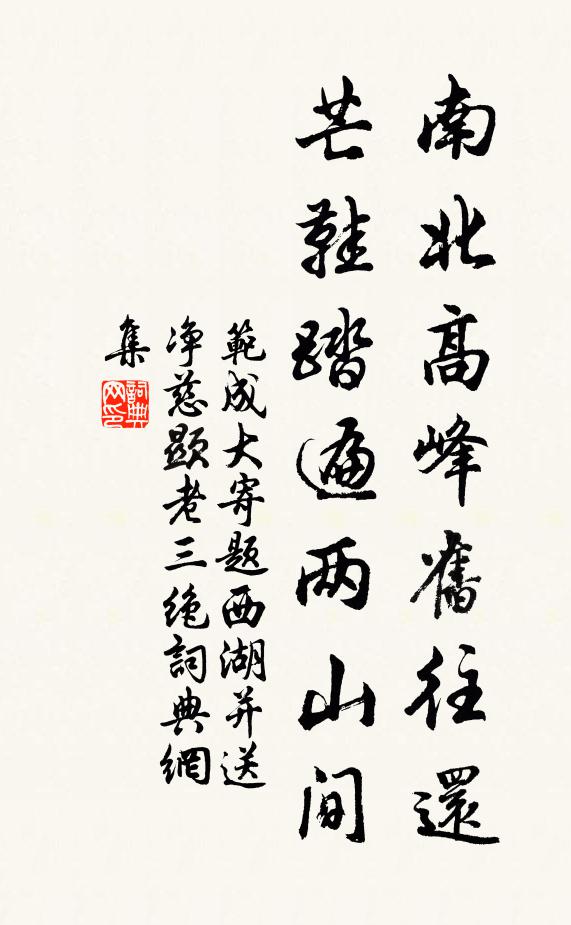 南北高峰舊往還
芒鞋踏遍两山间
範成大寄题西湖并送
净慈顕老三绝詞典網
集
詞典
网印